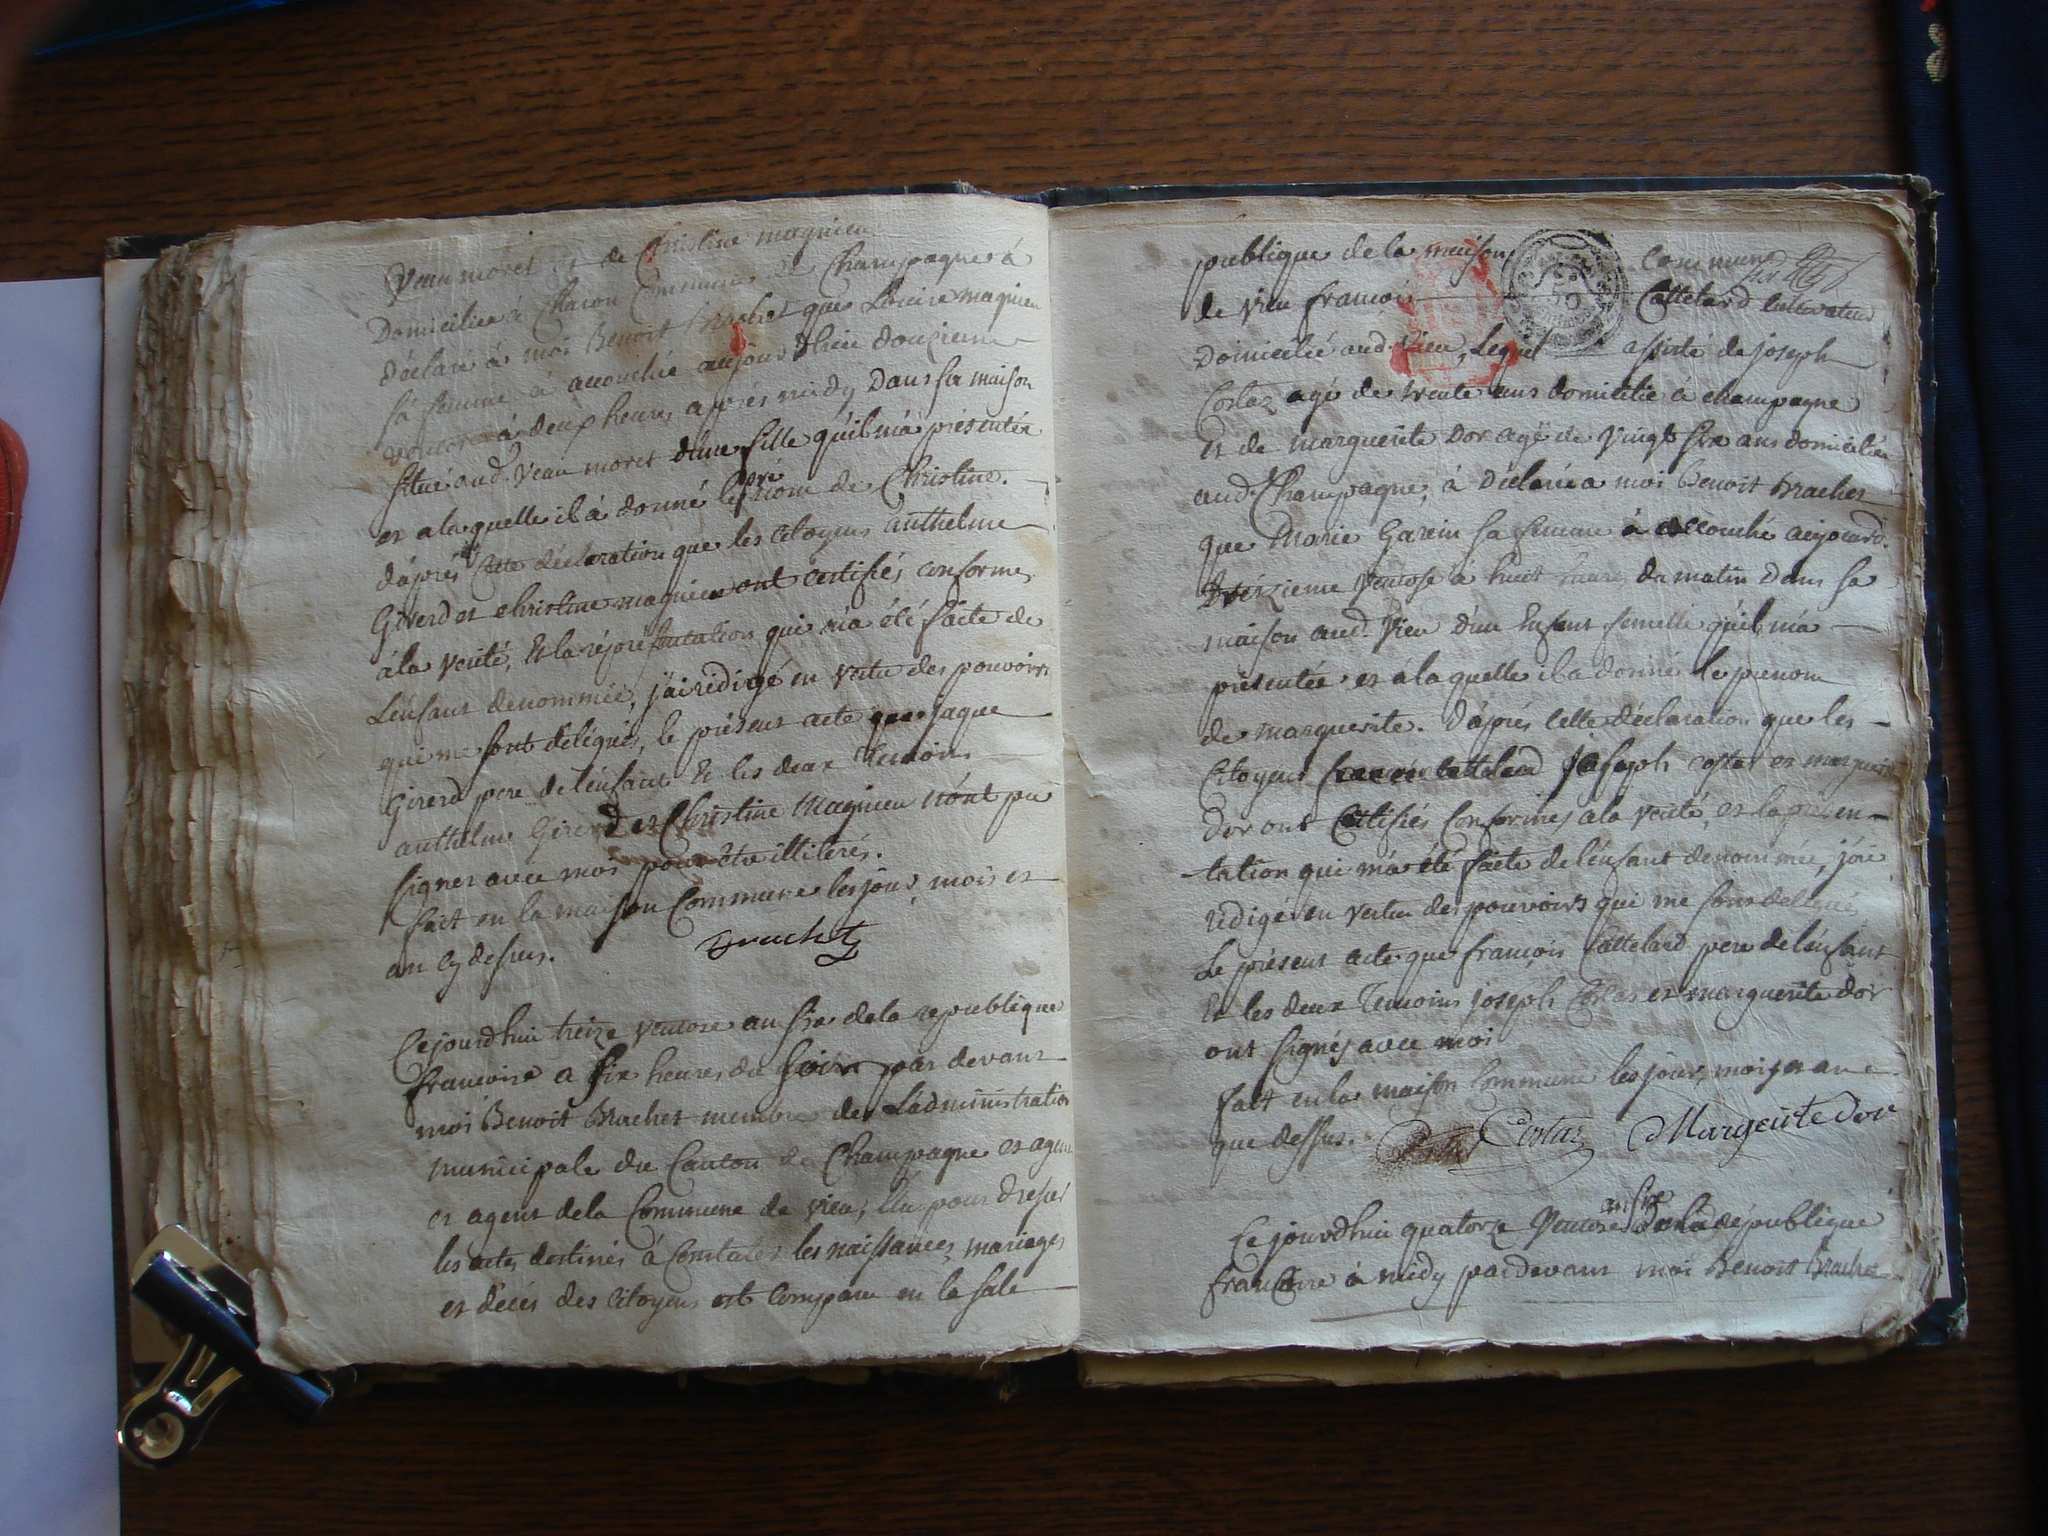 Veau moret et de Christine magnieu
Domiciliée à Charon Commune de Champagne à
déclaré à moi Benoit Brachet que Louise magnieu
sa femme à accouchée aujourdhui douzieme
ventose à deux heures après midy Dans sa maison
situé aud. Veau moret d'une fille qu'il m'a présentée
et a laquelle il à donné le prénom de Christine.
d'après cette déclaration que les Citoyens anthelme
Girerd et christine magnieu ont certifiés conforme
à la vérité, Et la représentation qui m'a été faite de
L'enfant dénommée, j'ai rédigé en vertu des pouvoirs
qui me sont délégués, le présent acte que jaque
Girerd pere de l'enfant Et les deux Temoins
anthelme Girerd et Christine Magnieu n'ont pu
signer avec moi pour être illiterés.
fait en la maison Commune les jour, mois et
an cy dessus. Brachet
Cejourdhui treize ventose an six de la republique
francoise a six heures du soir par devant
moi Benoit Brachet membre de L'administration
municipale du Canton de Champagne et agent
et agent de la Commune de vieu, Elu pour dresser
les actes destinés à Constater les naissances, mariages
et décès des Citoyens est comparu en la sale
publique de la maison Commune
de vieu françois Cattelard cultivateur
Domicilié aud. Vieu, Lequel assisté de joseph
Costaz agé de trente ans domicilié à champagne
et de marguerite Dor agé de vingt six ans domiciliée
aud. Champagne, à Déclarée a moi Benoit Brachet
que Marie Garin sa femme à accouché aujourd.
treizieme Ventose à huit heures du matin Dans sa
maison aud. Vieu d'un Enfant femelle qu'il m'a
présentée et à laquelle il a donné le prenom
de marguerite. D'après Cette déclaration que les
Citoyens Cattelard joseph costaz et marguerite
Dor ont Certifiés Conformes a la vérité, et la présen-
tation qui m'a été faite de l'enfant dénommée, j'ai
rédigé en vertu des pouvoirs qui me sont délégués
Le présent acte que françois Cattelard pere de l'enfant
Et les deux Temoins joseph Costaz et marguerite dor
ont signés avec moi
fait en la maison Commune les jour, mois et an
que dessus. Costaz Margeritte dor
Ce jourdhui quatorze Ventose an six de la république
francoise à midy pardevant moi Benoit Brachet